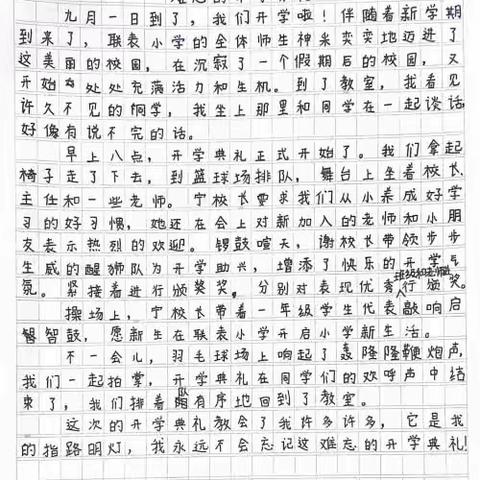 九月一日到了，我们开学啦！伴随着新学期
到来了，联表小学的全体师生神采奕奕地迈进了
这美丽的校园，在沉寂了一个假期后的校园，又
开始处处充满活力和生机。到了教室，我看见
许久不见的同学，我坐上那里和同学在一起谈话
好像有说不完的话。
早上八点，开学典礼正式开始了。我们拿起
椅子走了下去，到篮球场排队，舞台上坐着校长、
主任和一些老师。宁校长要求我们从小养成好学
习的好习惯，她还在会上对新加入的老师和小朋
友表示热烈的欢迎。锣鼓喧天，谢校长带领步步
生威的醒狮队为开学助兴，增添了快乐的开学气
氛。紧接着进行颁奖奖，分别对表现优秀班级和老师进行颁奖。
操场上，宁校长带着一年级学生代表敲响启
智鼓，愿新生在联表小学开启小学新生活。
不一会儿，羽毛球场上响起了轰隆隆鞭炮声，
我们一起拍掌，开学典礼在同学们的欢呼声中结
束了，我们排着队有序地回到了教室。
这次的开学典礼教会了我许多许多，它是我
的指路明灯，我永远不会忘记这难忘的开学典礼！